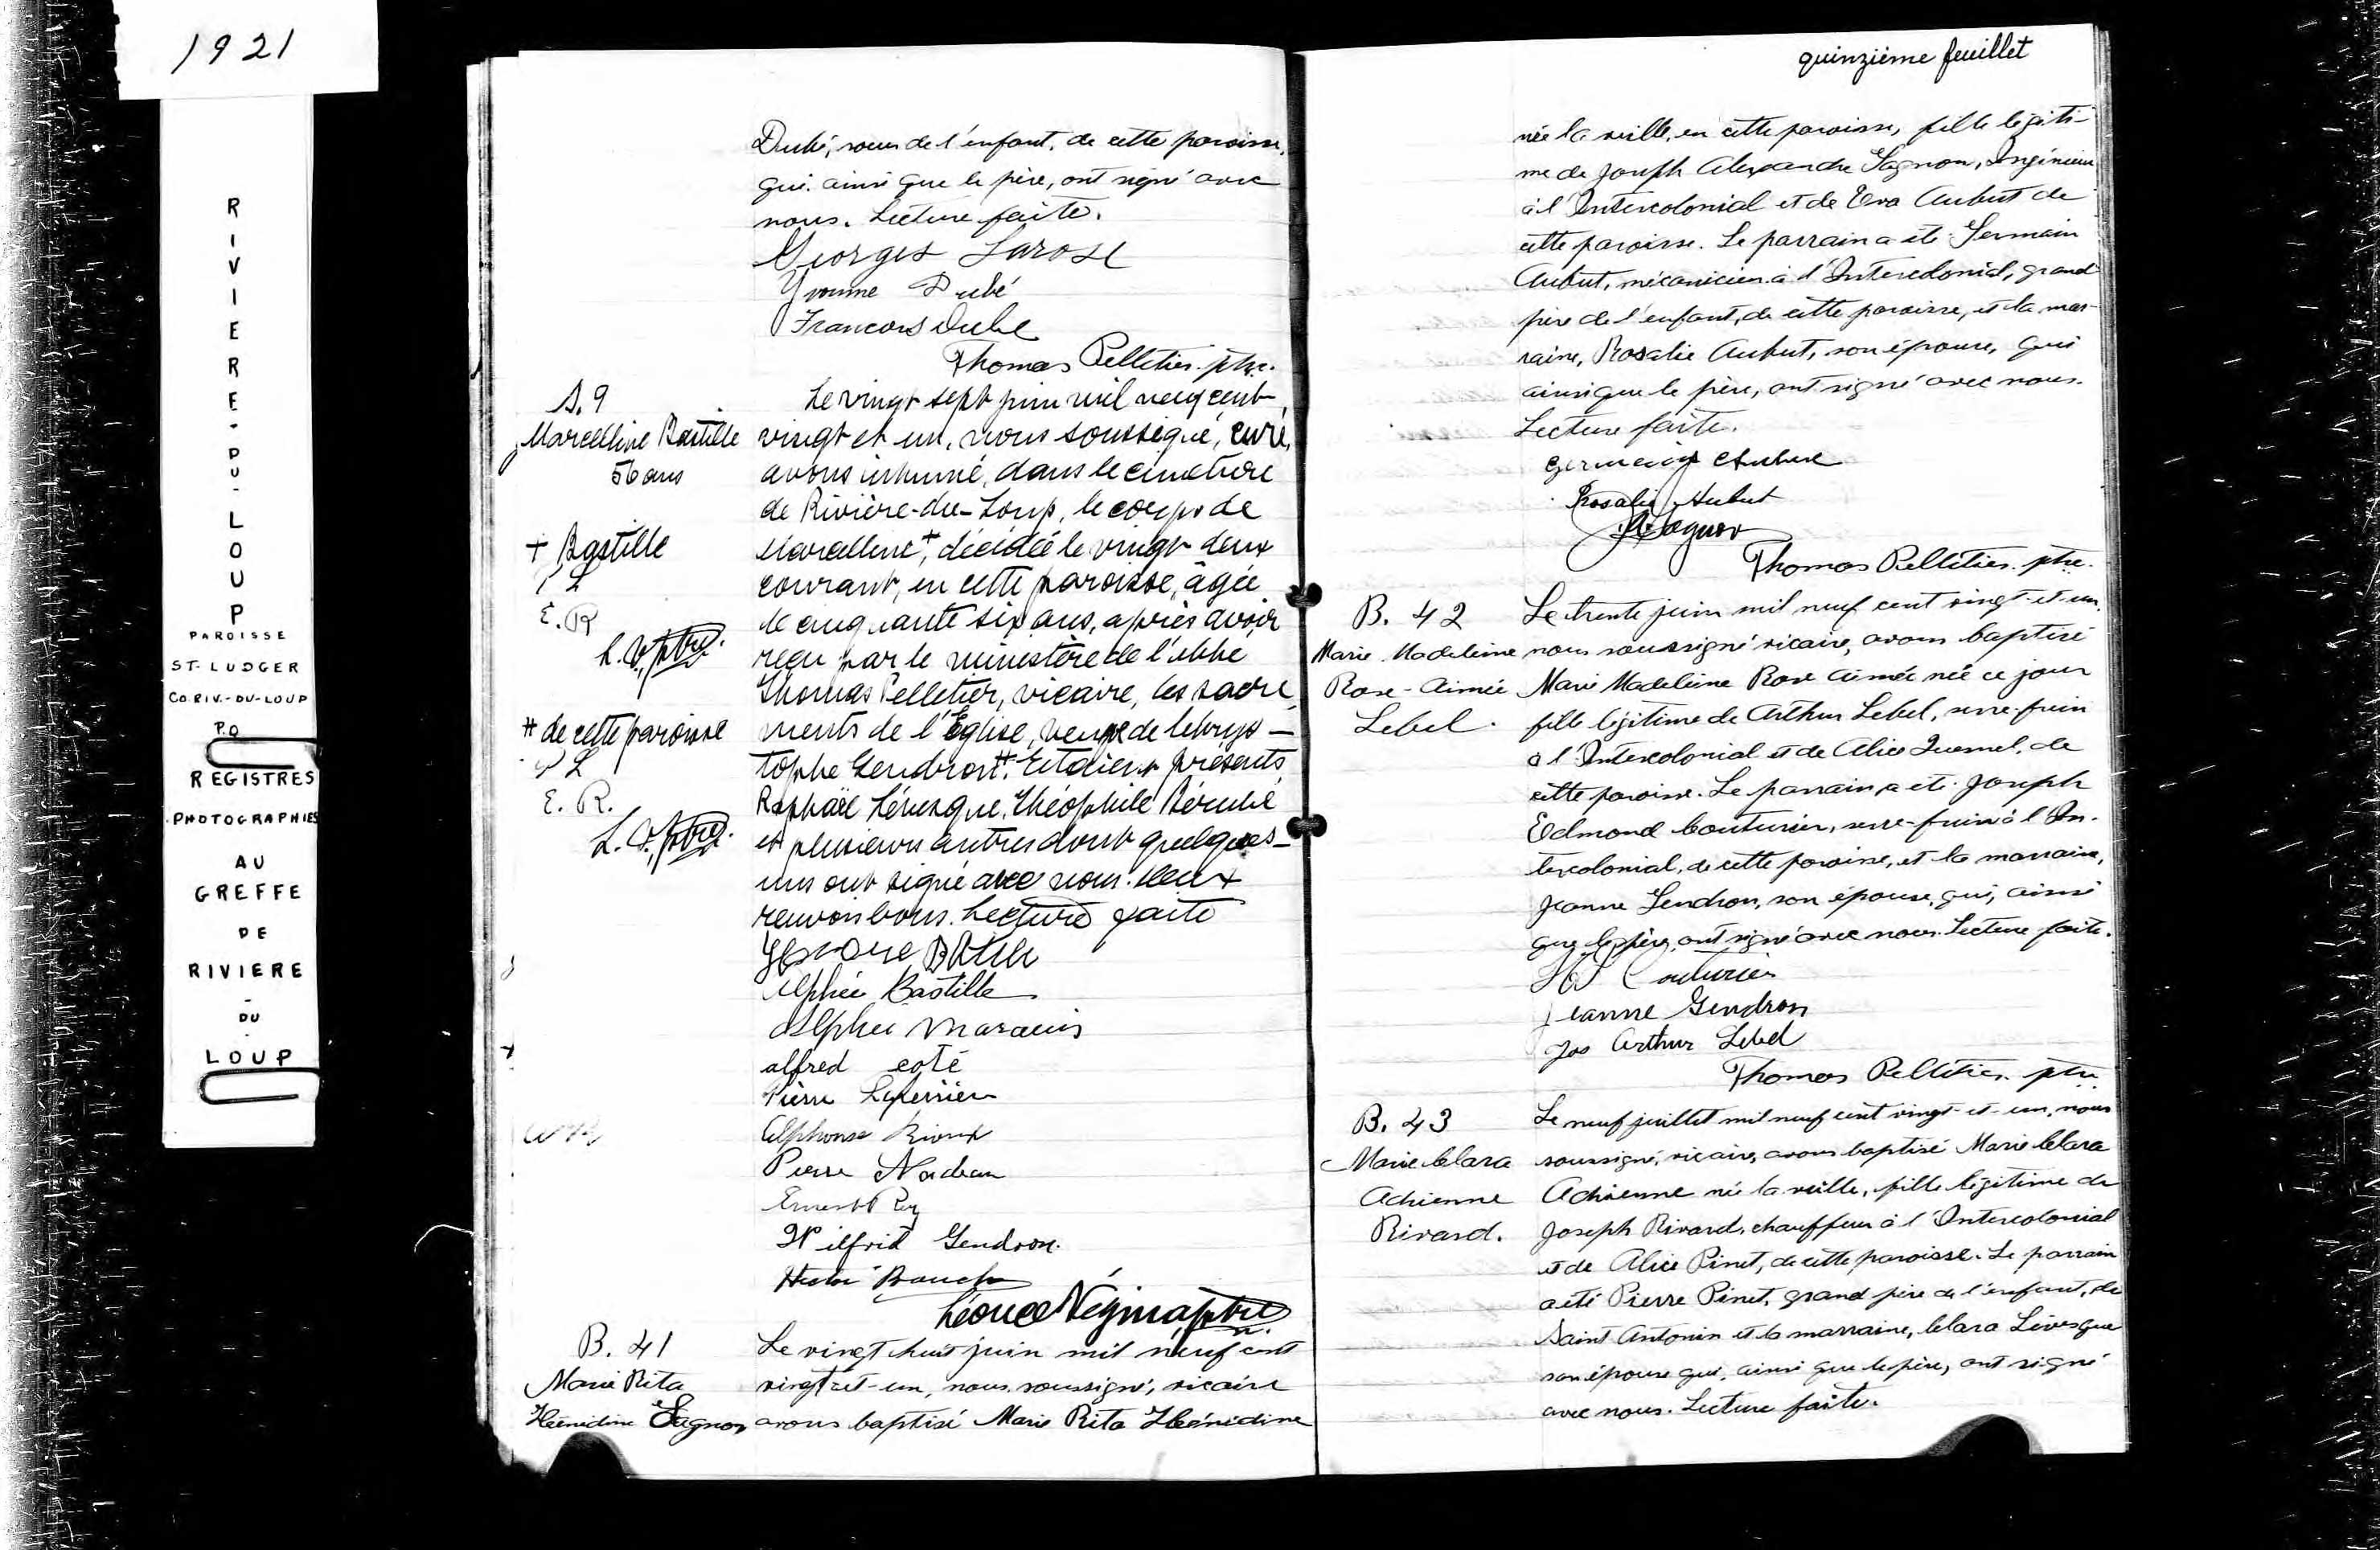 1921
RIVIERE-DU-LOUP
PAROISSE
ST-LUDGER
CO. RIV.-DU-LOUP
P.Q
REGISTRES
PHOTOGRAPHIES
AU
GREFFE
DE
RIVIERE
-
DU
-
LOUP
Dubé, soeur de l'enfant, de cette paroisse,
qui ainsi que le père, ont signé avec
nous. Lecture faite.
Georges Larose
Yvonne Dubé
Francois Dube
Thomas Pelletier ptre.
S. 9
Marcelline Bastille
56 ans
+ Bastille
P L
E. R
L. V, ptre.
# de cette paroisse
P L
E. R.
L. V, ptre.
Le vingt sept juin mil neuf cent
vingt et un, nous soussigné, curé,
avons inhumé, dans le cimetière
de Rivière-du-Loup, le corps de
Marcelline +, décédée le vingt deux
courant, en cette paroisse, âgée
de cinquante six ans, après avoir
reçu par le ministère de l'abbé
Thomas Pelletier, vicaire, les sacre
ments de l'Eglise, veuve de Chrys-
tophe Gendron #. Etaient présents
Raphaël Lévesque, Théophile Bérubé
et plusieurs autres dont quelques-
uns ont signé avec nous. Deux
renvois bons. Lecture faite
Alphée Bastille
Alphée Marquis
alfred coté
Pierre Laperrière
Alphonse Rioux
Pierre Nadeau
Ernest Roy
Wilfrid Gendron.
Léonce Vézina, ptre
B. 41
Marie Rita
Hénédine Gagnon
Le vingt huit juin mil neuf cent
vingt-et-un, nous soussigné, vicaire
avons baptisé Marie Rita Hénédine
quinzième feuillet
née la veille, en cette paroisse, fille légiti-
me de Joseph Alexandre Gagnon, Ingénieur
à l'Intercolonial et de Eva Aubut de
cette paroisse. Le parrain a été Germain
Aubut, mécanicien à l'Intercolonial, grand
père de l'enfant, de cette paroisse, et la mar-
raine, Rosalie Aubut, son épouse, qui
ainsi que le père, ont signé avec nous.
Lecture faite.
germain Aubut
Rosalie Aubut
JA Gagnon
Thomas Pelletier ptre.
B. 42
Marie Madeleine
Rose-Aimée
Lebel.
Le trente juin mil neuf cent vingt-et-un,
nous soussigné vicaire, avons baptisé
Marie Madeleine Rose Aimée née ce jour
fille légitime de Arthur Lebel, serre-frein
à l'Intercolonial et de Alice Quesnel, de
cette paroisse. Le parrain a été Joseph
Edmond Couturier, serre-frein à l'In-
tercolonial, de cette paroisse, et la marraine,
Jeanne Gendron, son épouse, qui, ainsi
que le père, ont signé avec nous. Lecture faite.
Couturier
Jeanne Gendron
Jos Arthur Lebel
Thomas Pelletier ptre
B. 43
Marie Clara
Adrienne
Rivard.
Le neuf juillet mil neuf cent vingt-et-un, nous
soussigné, vicaire, avons baptisé Marie Clara
Adrienne née la veille, fille légitime de
Joseph Rivard, chauffeur à l'Intercolonial
et de Alice Pinet, de cette paroisse. Le parrain
a été Pierre Pinet, grand père de l'enfant, de
Saint Antonin et la marraine, Clara Lévesque
son épouse qui, ainsi que le père, ont signé
avec nous. Lecture faite.